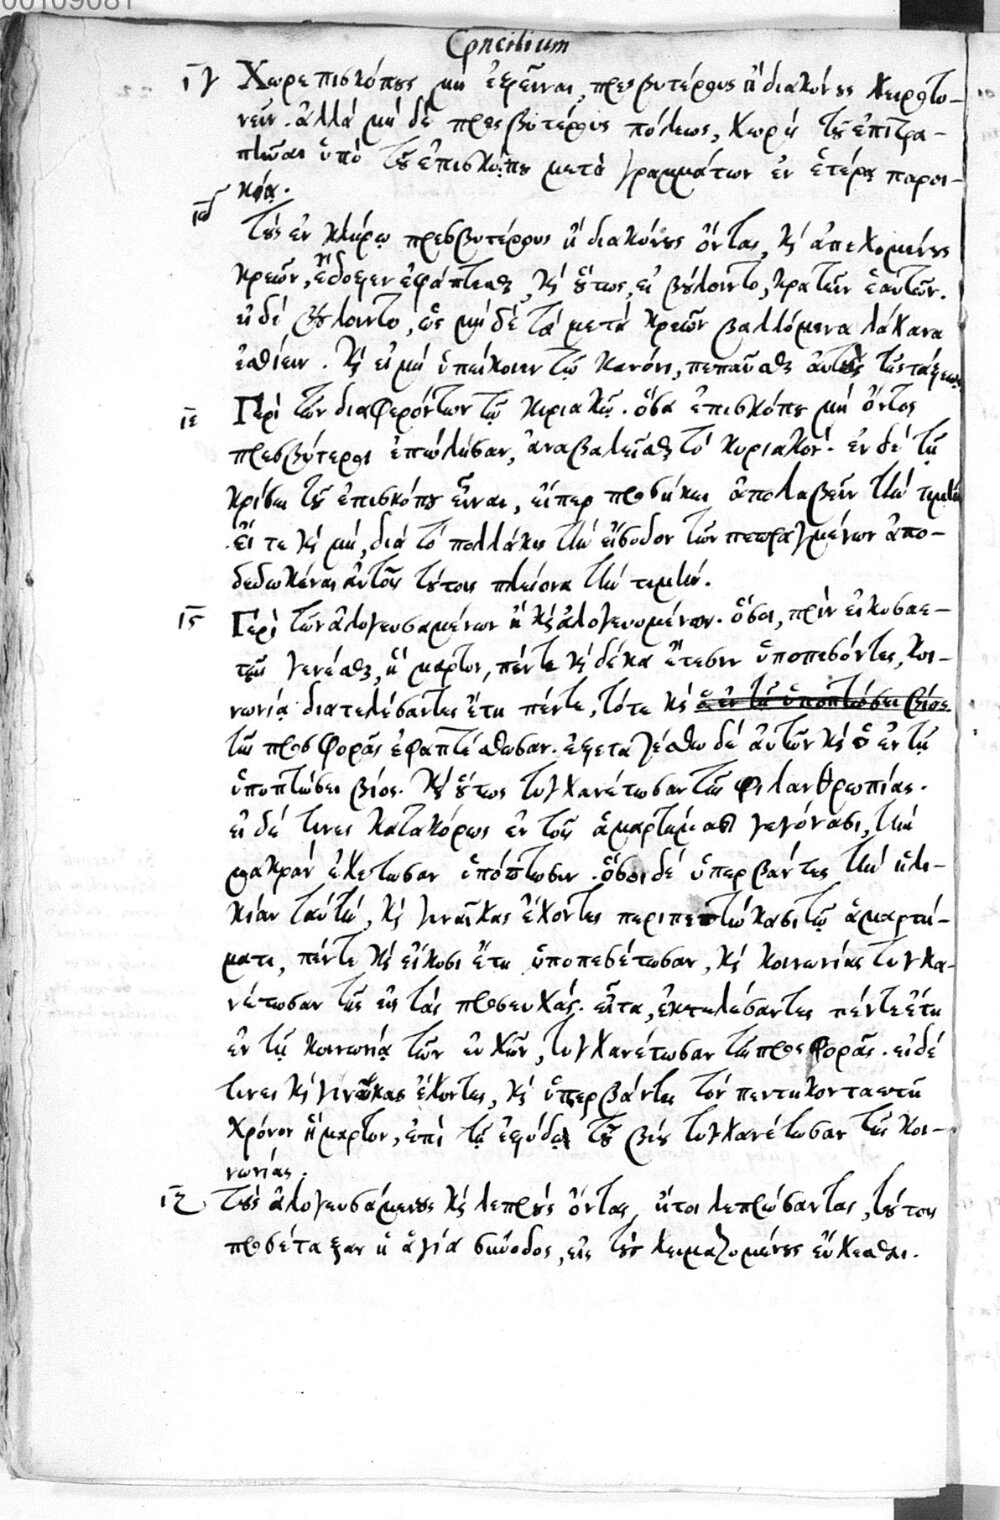 00109081
Concilium
ιγ Χωρεπισκόπους μὴ ἐξεῖναι, πρεσβυτέρους ἢ διακόνους χειροτο-
νεῖν. ἀλλὰ μὴ δὲ πρεσβυτέρους πόλεως, χωρὶς τοῦ ἐπιτρα-
πῆναι ὑπὸ τοῦ ἐπισκόπου μετὰ γραμμάτων ἐν ἑτέρᾳ παροι-
κίᾳ.
ιδ Τοὺς ἐν κλήρῳ πρεσβυτέρους ἢ διακόνους ὄντας, καὶ ἀπεχομένους
κρεῶν, ἔδοξεν ἐφάπτεσθαι, καὶ οὕτως, εἰ βούλοιντο, κρατεῖν ἑαυτῶν.
εἰ δὲ βούλοιντο, ὡς μὴ δὲ τὰ μετὰ κρεῶν βαλλόμενα λάχανα
ἐσθίειν. καὶ εἰ μὴ ὑπείκοιεν τῷ κανόνι, πεπαῦσθαι αὐτοὺς τῆς τάξεως.
ιε Περὶ τῶν διαφερόντων τῷ κυριακῷ. ὅσα ἐπισκόπου μὴ ὄντος
πρεσβύτεροι ἐπώλησαν, ἀναβαλεῖσθαι τὸ κυριακόν. ἐν δὲ τῇ
κρίσει τοῦ ἐπισκόπου εἶναι, εἴπερ προσήκει ἀπολαβεῖν τὴν τιμὴν
εἴ τε καὶ μὴ, διὰ τὸ πολλάκις τὴν εἴσοδον τῶν πεπραγμένων ἀπο-
δεδωκέναι αὐτοῖς τούτοις πλείονα τὴν τιμήν.
ις Περὶ τῶν ἀλογευσαμένων ἢ καὶ ἀλογευομένων. ὅσοι, πρὶν εἰκοσαε-
τεῖς γενέσθαι, ἥμαρτον, πέντε καὶ δέκα ἔτεσιν ὑποπεσόντες, κοι-
νωνίᾳ διατελέσαντες ἔτη πέντε, τότε καὶ ὁ ἐν τῇ ὑποπτώσει βίος
τῆς προσφορᾶς ἐφαπτέσθωσαν. ἐξεταζέσθω δὲ αὐτῶν καὶ ὁ ἐν τῇ
ὑποπτώσει βίος. καὶ οὕτως τυγχανέτωσαν τῆς φιλανθρωπίας.
εἰ δέ τινες κατακόρως ἐν τοῖς ἁμαρτήμασι γεγόνασι, τὴν
μακρὰν ἐχέτωσαν ὑπόπτωσιν. ὅσοι δὲ ὑπερβάντες τὴν ἡλι-
κίαν ταύτην, καὶ γυναῖκας ἔχοντες περιπεπτώκασι τῷ ἁμαρτή-
ματι, πέντε καὶ εἴκοσι ἔτη ὑποπεσέτωσαν, καὶ κοινωνίας τυγχα-
νέτωσαν τῆς εἰς τὰς προσευχάς. εἶτα, ἐκτελέσαντες πέντε ἔτη
ἐν τῇ κοινωνίᾳ τῶν εὐχῶν, τυγχανέτωσαν τῆς προσφορᾶς. εἰ δέ
τινες καὶ γυναῖκας ἔχοντες, καὶ ὑπερβάντες τὸν πεντηκονταετῆ
χρόνον ἥμαρτον, ἐπὶ τῇ ἐξόδῳ τοῦ βίου τυγχανέτωσαν τῆς κοι-
νωνίας.
ιζ Τοὺς ἀλογευσαμένους καὶ λεπροὺς ὄντας, ἤτοι λεπρώσαντας, τούτους
προσέταξεν ἡ ἁγία σύνοδος, εἰς τοὺς χειμαζομένους εὔχεσθαι.